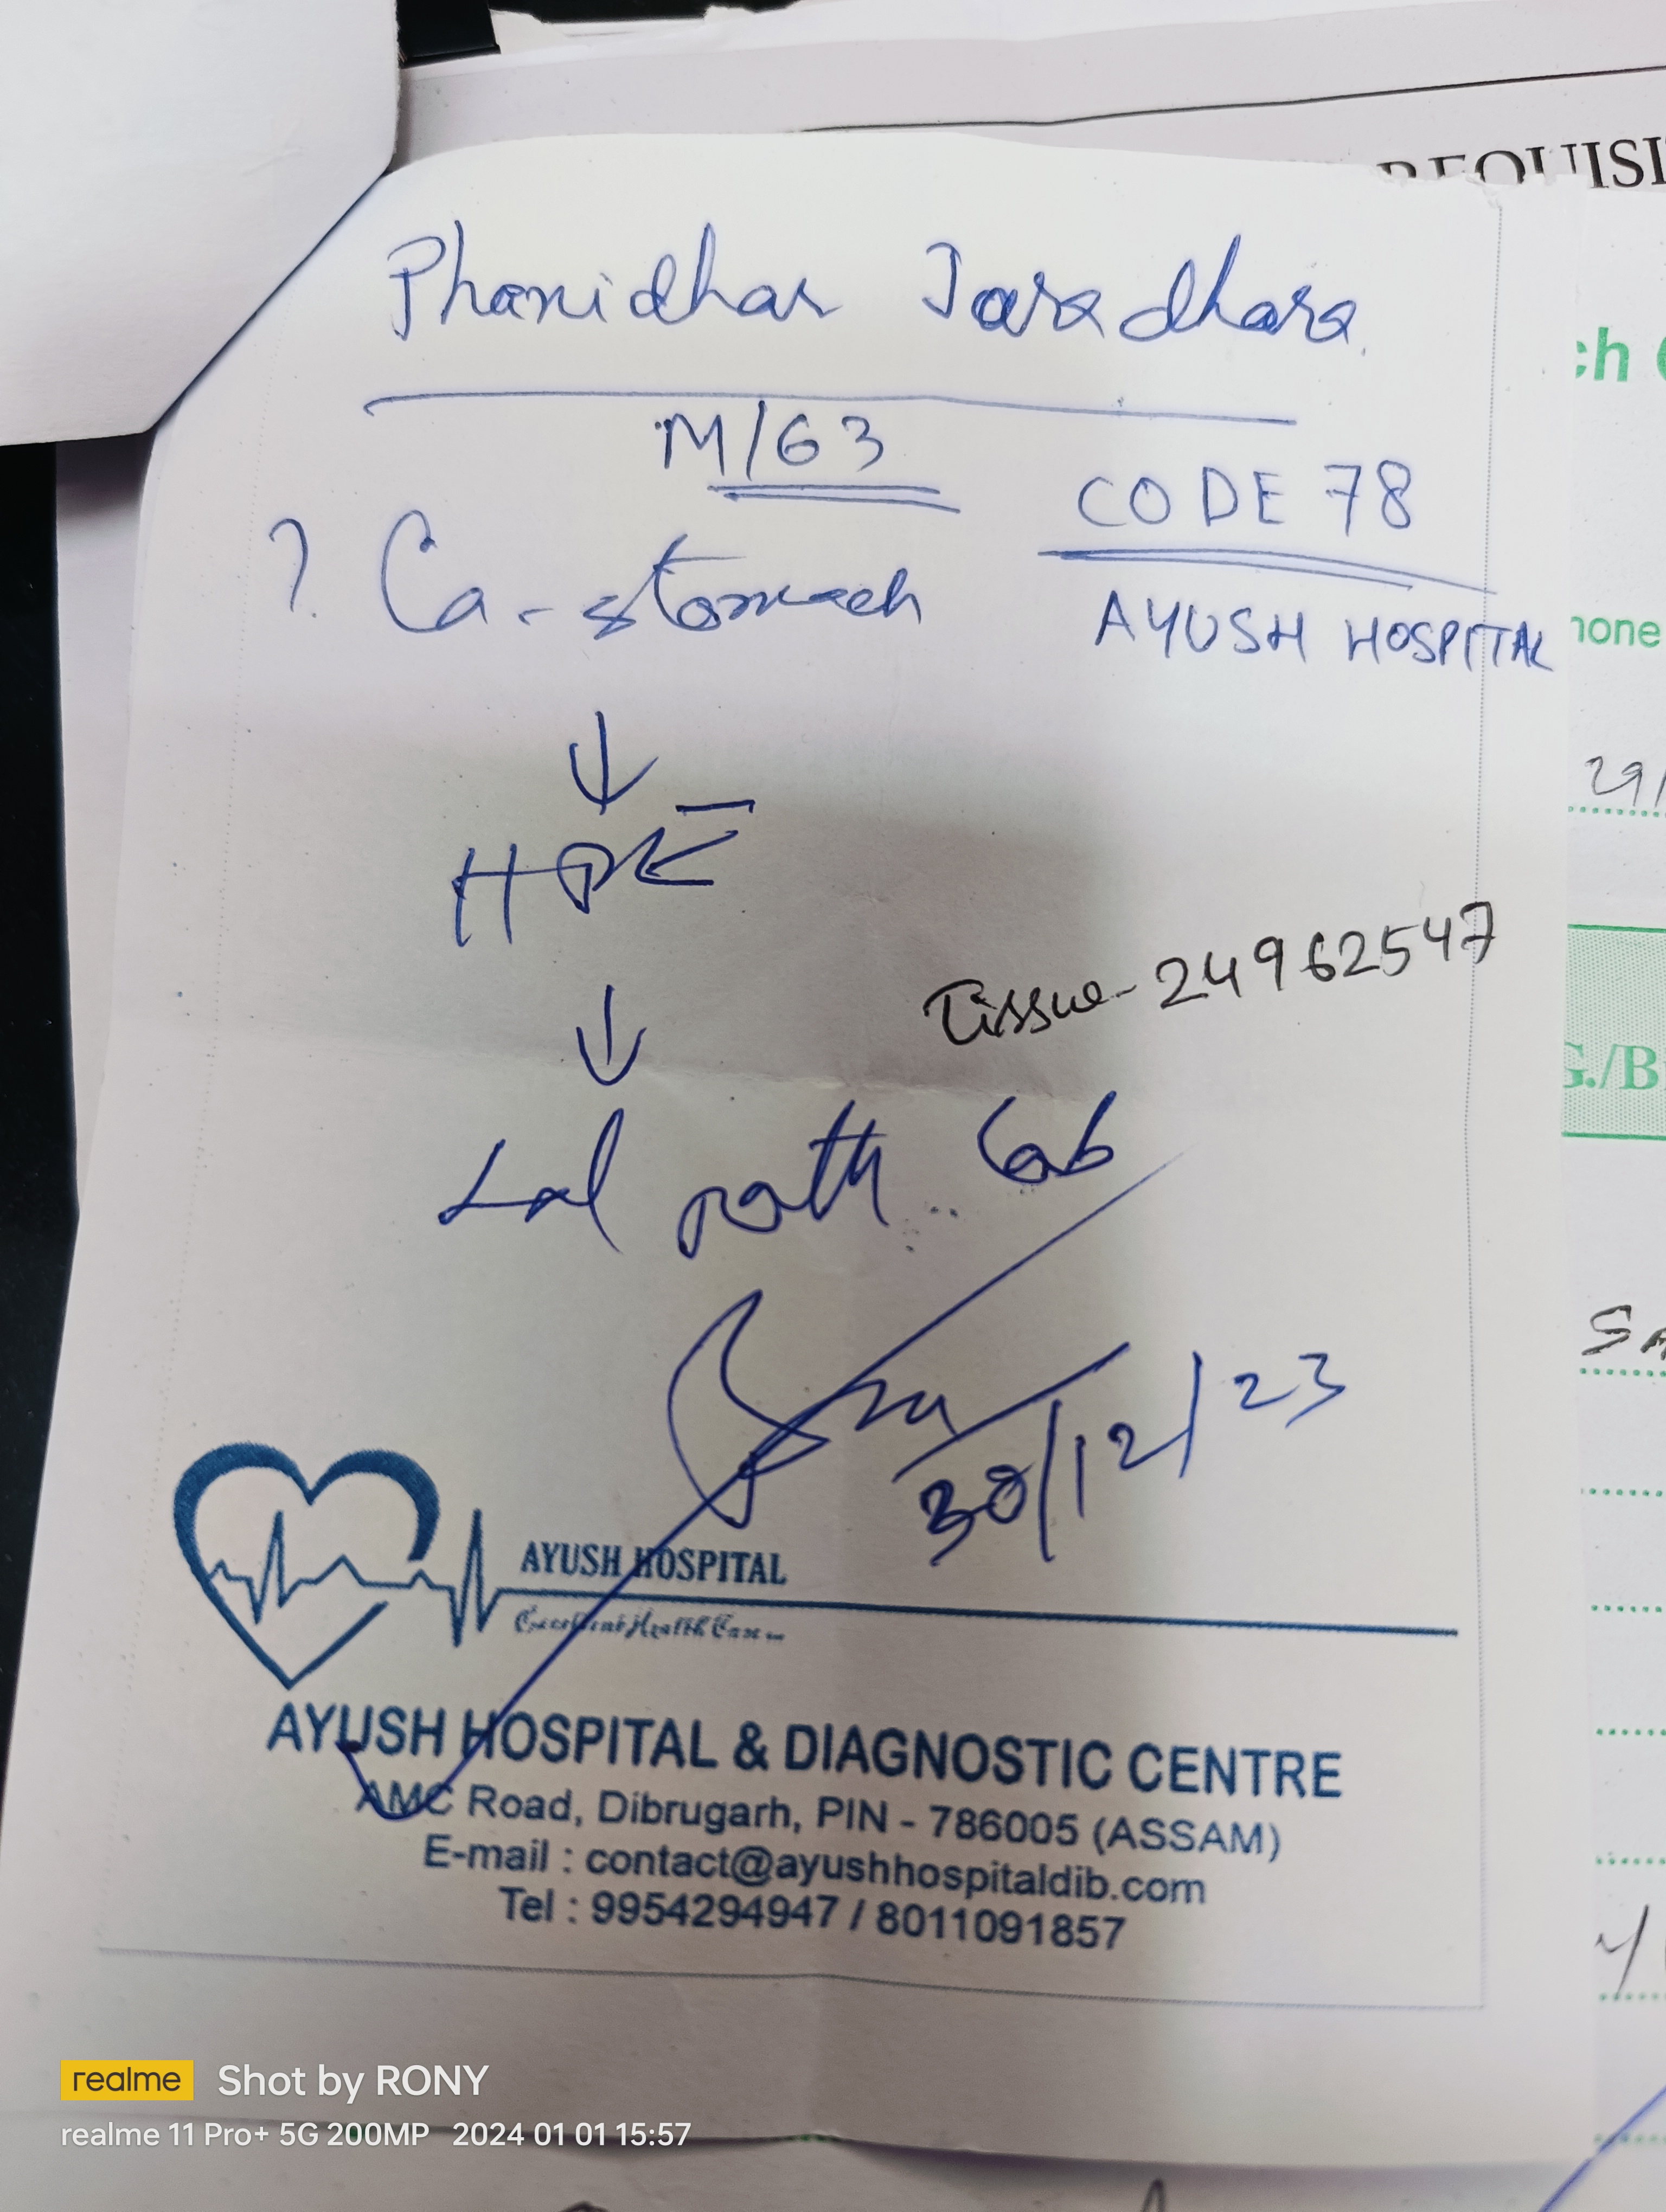 REQUISI
Phanidhar Jaradhara
M/63
CODE 78
? Ca-stomach
AYUSH HOSPITAL
↓
HPE
Tissue-24962547
↓
Lal path lab
30/12/23
AYUSH HOSPITAL
Excellent Health Care
AYUSH HOSPITAL & DIAGNOSTIC CENTRE
AMC Road, Dibrugarh, PIN - 786005 (ASSAM)
E-mail : contact@ayushhospitaldib.com
Tel : 9954294947 / 8011091857
ch
hone
29/
G./B
realme Shot by RONY
realme 11 Pro+ 5G 200MP 2024 01 01 15:57